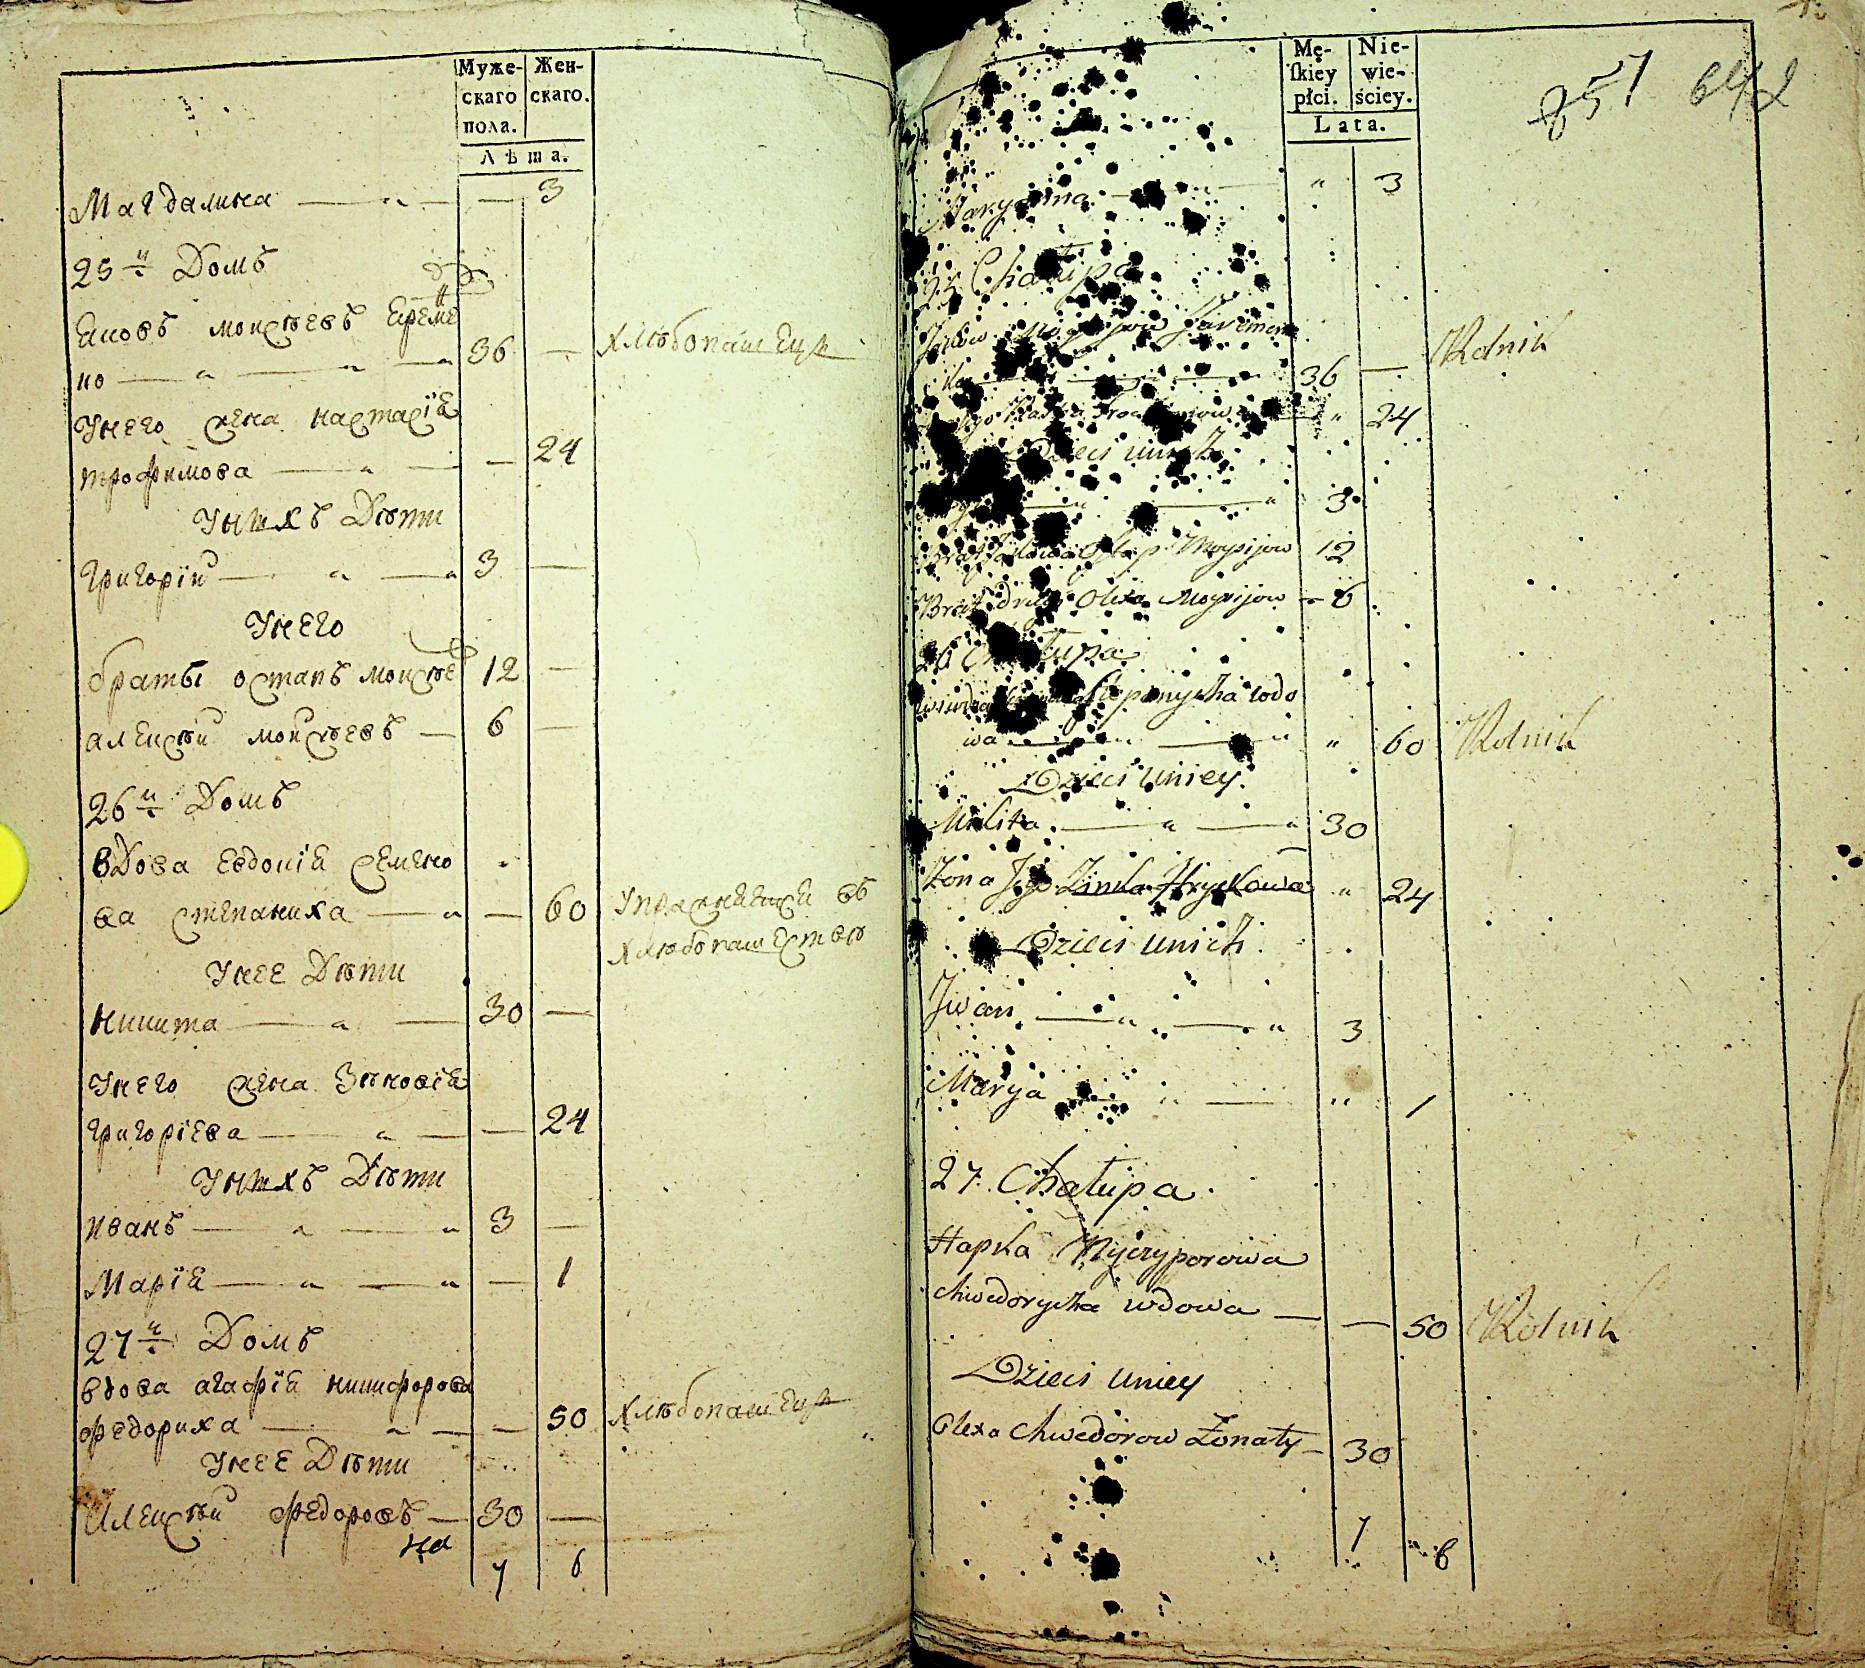 Муже-
скаго
пола.
Жен-
скаго.
Лѣта.
Магдалина — „ — — 3
25й Домъ
Ековъ моисѣевъ Ереме
но — „ — „ — 36 — хлѣбопашецъ
Унего жена настасїя
трофимова — „ — — 24
Унихъ Дѣти
григорїй — „ — „ 3 —
Унего
браты остапъ моисѣе 12 —
алексѣй моисѣевъ — 6 —
26й Домъ
вдова евдокїя семено
ва степаниха — „ — 60 Упражняется въ
хлѣбопашествѣ
Унее Дѣти
никита — „ — 30 —
Унего жена Зѣновїя
григорїева — „ — — 24
Унихъ Дѣти
иванъ — „ — „ 3 —
Марїя — „ — „ — 1
27й Домъ
вдова агафїя никифорова
федориха — „ — — 50 хлѣбопашецъ
Унее Дѣти
Алексѣй федоровъ — 30 —
на
7 6
Mę-
skiey
płci.
Nie-
wie-
ściey.
Lata.
257 642
„ 3
25 Chałupa
36 — Rolnik
„ 24
Dzieci unich
„ 3
Brat Ostap Moysijow 12
Brat drugi Olexa Moysijow — 6
26 Chałupa
Stepanycha wdo
wa — „ — „ „ 60 Rolnik
Dzieci uniey.
Mikita — „ — „ 30
Żona Jego Zinka Hryckowa „ 24
Dzieci unich.
Iwan — „ — „ 3
Marya — „ — „ 1
27. Chałupa.
Hapka Nyczyporowa
Chwedorycha wdowa — — 50 Rolnik
Dzieci uniey
Olexa Chwedorow Żonaty — 30
7 6